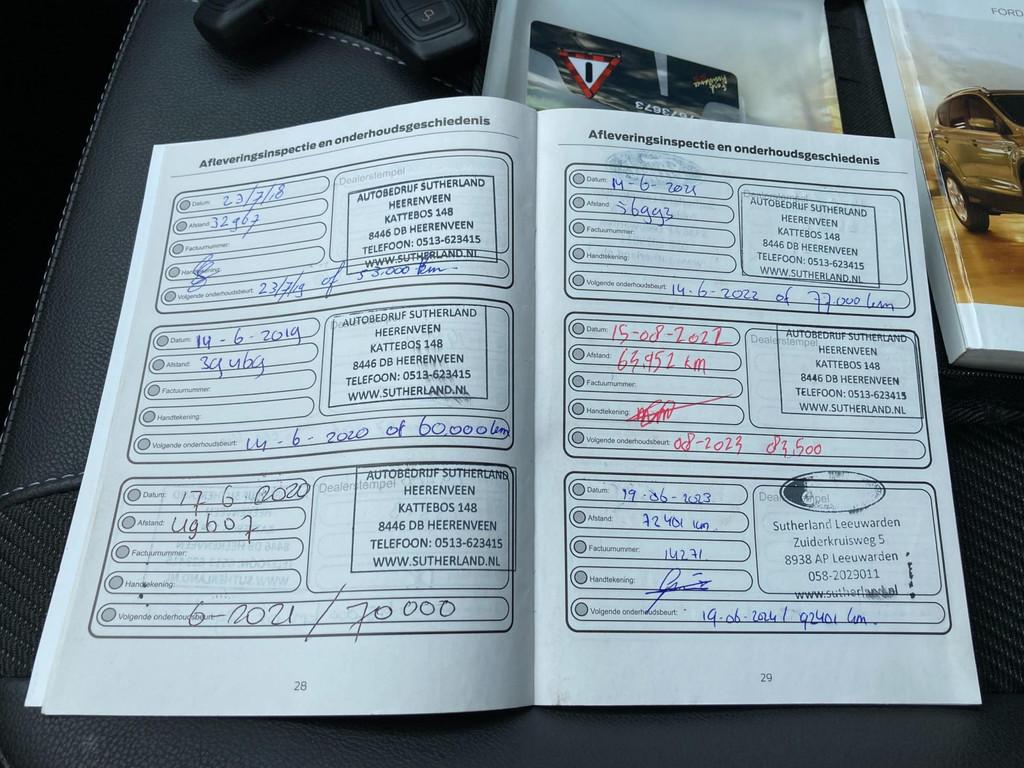 FORD
Afleveringsinspectie en onderhoudsgeschiedenis
Datum: 23/7/18
Afstand: 32967
Factuurnummer:
Handtekening:
Volgende onderhoudsbeurt: 23/7/19 of 53.000 km
Dealerstempel
AUTOBEDRIJF SUTHERLAND
HEERENVEEN
KATTEBOS 148
8446 DB HEERENVEEN
TELEFOON: 0513-623415
WWW.SUTHERLAND.NL
Datum: 14-6-2019
Afstand:
Factuurnummer:
Handtekening:
Volgende onderhoudsbeurt: 14-6-2020 of 60.000 km
AUTOBEDRIJF SUTHERLAND
HEERENVEEN
KATTEBOS 148
8446 DB HEERENVEEN
TELEFOON: 0513-623415
WWW.SUTHERLAND.NL
Datum: 17-6-2020
Afstand: 49607
Factuurnummer:
Handtekening:
Volgende onderhoudsbeurt: 6-2021/70000
Dealerstempel
AUTOBEDRIJF SUTHERLAND
HEERENVEEN
KATTEBOS 148
8446 DB HEERENVEEN
TELEFOON: 0513-623415
WWW.SUTHERLAND.NL
28
Afleveringsinspectie en onderhoudsgeschiedenis
Datum: 14-6-2021
Afstand: 56993
Factuurnummer:
Handtekening:
Volgende onderhoudsbeurt: 14-6-2022 of 77.000 km
AUTOBEDRIJF SUTHERLAND
HEERENVEEN
KATTEBOS 148
8446 DB HEERENVEEN
TELEFOON: 0513-623415
WWW.SUTHERLAND.NL
Datum: 15-08-2022
Afstand: 63.952 km
Factuurnummer:
Handtekening:
Volgende onderhoudsbeurt: 08-2023 83.500
AUTOBEDRIJF SUTHERLAND
HEERENVEEN
KATTEBOS 148
8446 DB HEERENVEEN
TELEFOON: 0513-623415
WWW.SUTHERLAND.NL
Datum: 19-06-2023
Afstand: 72401 km.
Factuurnummer: 14271
Handtekening:
Volgende onderhoudsbeurt: 19-06-2024 / 92401 km.
Sutherland Leeuwarden
Zuiderkruisweg 5
8938 AP Leeuwarden
058-2029011
www.sutherland.nl
29